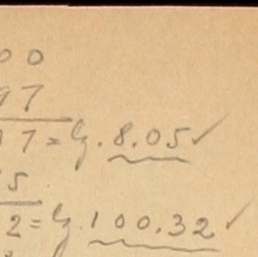 00
97
97 = lg. 8.05 ✓
5
2 = lg. 100.32 ✓